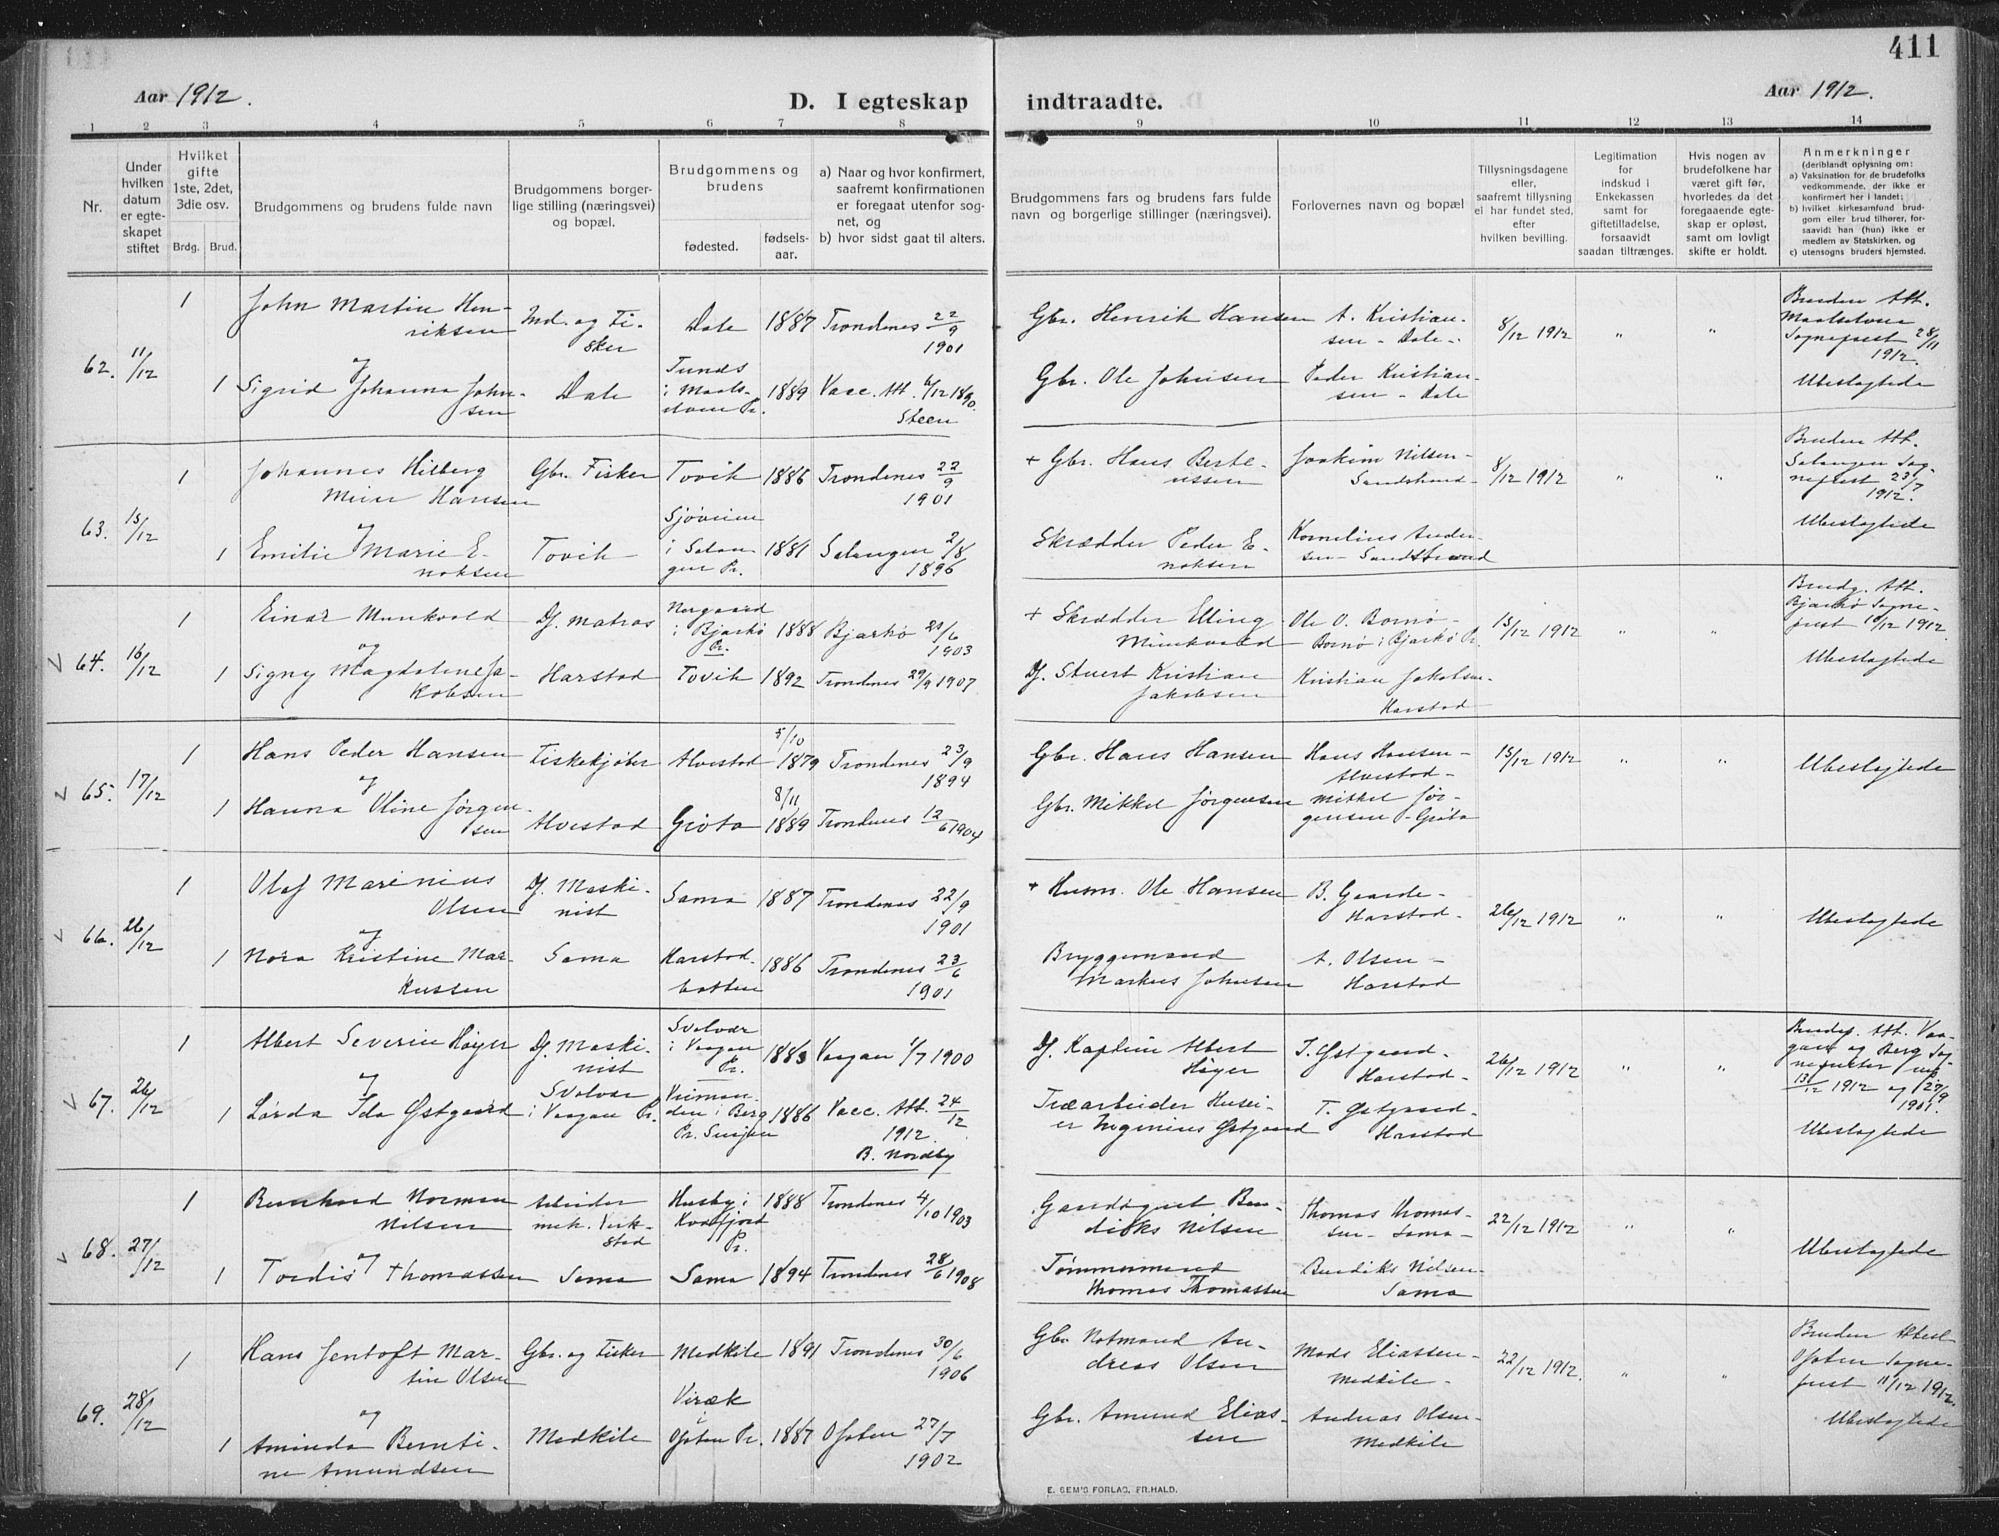 411
Aar 1912.
D. I egteskap
indtraadte.
Aar 1912.
1 2 3 4 5 6 7 8 9 10 11 12 13 14
Nr.
Under hvilken datum er egteskapet stiftet
Hvilket gifte 1ste, 2det, 3die osv.
Brdg. Brud.
Brudgommens og brudens fulde navn
Brudgommens borgerlige stilling (næringsvei) og bopæl.
Brudgommens og brudens
fødested.
fødselsaar.
a) Naar og hvor konfirmert, saafremt konfirmationen er foregaat utenfor sognet, og
b) hvor sidst gaat til alters.
Brudgommens fars og brudens fars fulde navn og borgerlige stillinger (næringsvei).
Forlovernes navn og bopæl
Tillysningsdagene eller, saafremt tillysning ei har fundet sted, efter hvilken bevilling.
Legitimation for indskud i Enkekassen samt for giftetilladelse, forsaavidt saadan tiltrænges.
Hvis nogen av brudefolkene har været gift før, hvorledes da det foregaaende egteskap er opløst, samt om lovligt skifte er holdt.
Anmerkninger
(deriblandt oplysning om:
a) Vaksination for de brudefolks vedkommende, der ikke er konfirmert her i landet;
b) hvilket kirkesamfund brudgom eller brud tilhører, forsaavidt han (hun) ikke er medlem av Statskirken, og
c) utensogns bruders hjemsted.
62. 11/12
1 John Martin Henriksen Ind. og Fisker Dale 1887 Trondenes 22/9 1901 Gbr. Henrik Hansen A. Kristiansen - Dale - 8/12 1912 " " Bruden Att. Maalselvens Sognepræst 28/11 1912.
og
1 Sigrid Johanna Johnsen Dale i Maalselvens Pr. 1889 Vacc. Att. 6/12 1890. Steen Gbr. Ole Johnsen Peder Kristiansen - Dale Ubeslægtede
63. 15/12
1 Johannes Hilberg Meier Hansen Gbr. Fisker Tovik 1886 Trondenes 22/9 1901 + Gbr. Hans Berteussen Joakim Nilsen - Sandstrand - 8/12 1912 " " Bruden Att. Salangen Sognepræst 23/7 1912.
og
1 Emilie Marie Enoksen Tovik Sjøveien i Salangen Pr. 1881 Salangen 2/8 1896 Skrædder Peder Enoksen Kornelius Andersen - Sandstrand Ubeslægtede
64. 16/12
1 Einar Munkvold Df. matros Nergaard i Bjarkø Pr. 1888 Bjarkø 21/6 1903 + Skrædder Elling Munkvold Ole O. Bornø - Bornø i Bjarkø Pr. 15/12 1912 " " Brudg. Att. Bjarkø Sognepræst 10/12 1912.
og
1 Signy Magdalene Jakobsen Harstad Tovik 1892 Trondenes 29/9 1907 Df. Stuert Kristian Jakobsen Kristian Jakobsen - Harstad Ubeslægtede
65. 17/12
1 Hans Peder Hansen Fiskekjøber Alvestad 5/10 1879 Trondenes 23/9 1894 Gbr. Hans Hansen Hans Hansen - Alvestad - 15/12 1912 " " Ubeslægtede
og
1 Hanna Oline Jørgensen Alvestad Grøta 8/11 1889 Trondenes 12/6 1904 Gbr. Mikkel Jørgensen Mikkel Jørgensen - Grøta
66. 26/12
1 Olaf Marinius Olsen Df. Maskinist Sama 1887 Trondenes 22/9 1901 + Husm. Ole Hansen B. Gaarde - Harstad - 26/12 1912 " " Ubeslægtede
og
1 Nora Kristine Markussen Sama Harstadbotten 1886 Trondenes 23/6 1901 Bryggemand Markus Johnsen A. Olsen - Harstad
67. 26/12
1 Albert Severin Høyer Df. Maskinist Svolvær i Vaagan Pr. 1883 Vaagan 1/7 1900 Df. Kaptein Albert Høyer T. Østgaard - Harstad - 26/12 1912 " " Brudef. Att. Vaagan og Berg Sognepræster 13/12 1912 og 27/9 1901.
og
1 Lørda Ida Østgaard Svolvær i Vaagan Pr. i Berg Pr. Senjen 1886 Vacc. Att. 24/12 1912. B. Nordby Træarbeider Østgaard T. Østgaard - Harstad Ubeslægtede
68. 27/12
1 Bernhard Norman Nilsen Arbeider mek. Verkstad Husby i Kvæfjord Pr. 1888 Trondenes 4/10 1903 Gaardsgut Bendiks Nilsen Thomas Thomassen - Sama - 22/12 1912 " " Ubeslægtede
og
1 Tordis Thomassen Sama Sama 1894 Trondenes 28/6 1908 Tømmermand Thomas Thomassen Bendiks Nilsen - Sama
69. 28/12
1 Hans Jentoft Martin Olsen Gbr. og Fisker Medkile 1891 Trondenes 30/6 1906 Gbr. Notmand Andreas Olsen Mads Eliassen - Medkile - 22/12 1912. " " Bruden Attest Ofoten Sognepræst 11/12 1912.
og
1 Aminda Berntine Amundsen Medkile Viræk Ofoten Pr. 1887 Ofoten 27/7 1902 Gbr. Amund Eliassen Andreas Olsen - Medkile Ubeslægtede
E. SEM'S FORLAG, FR.HALD.